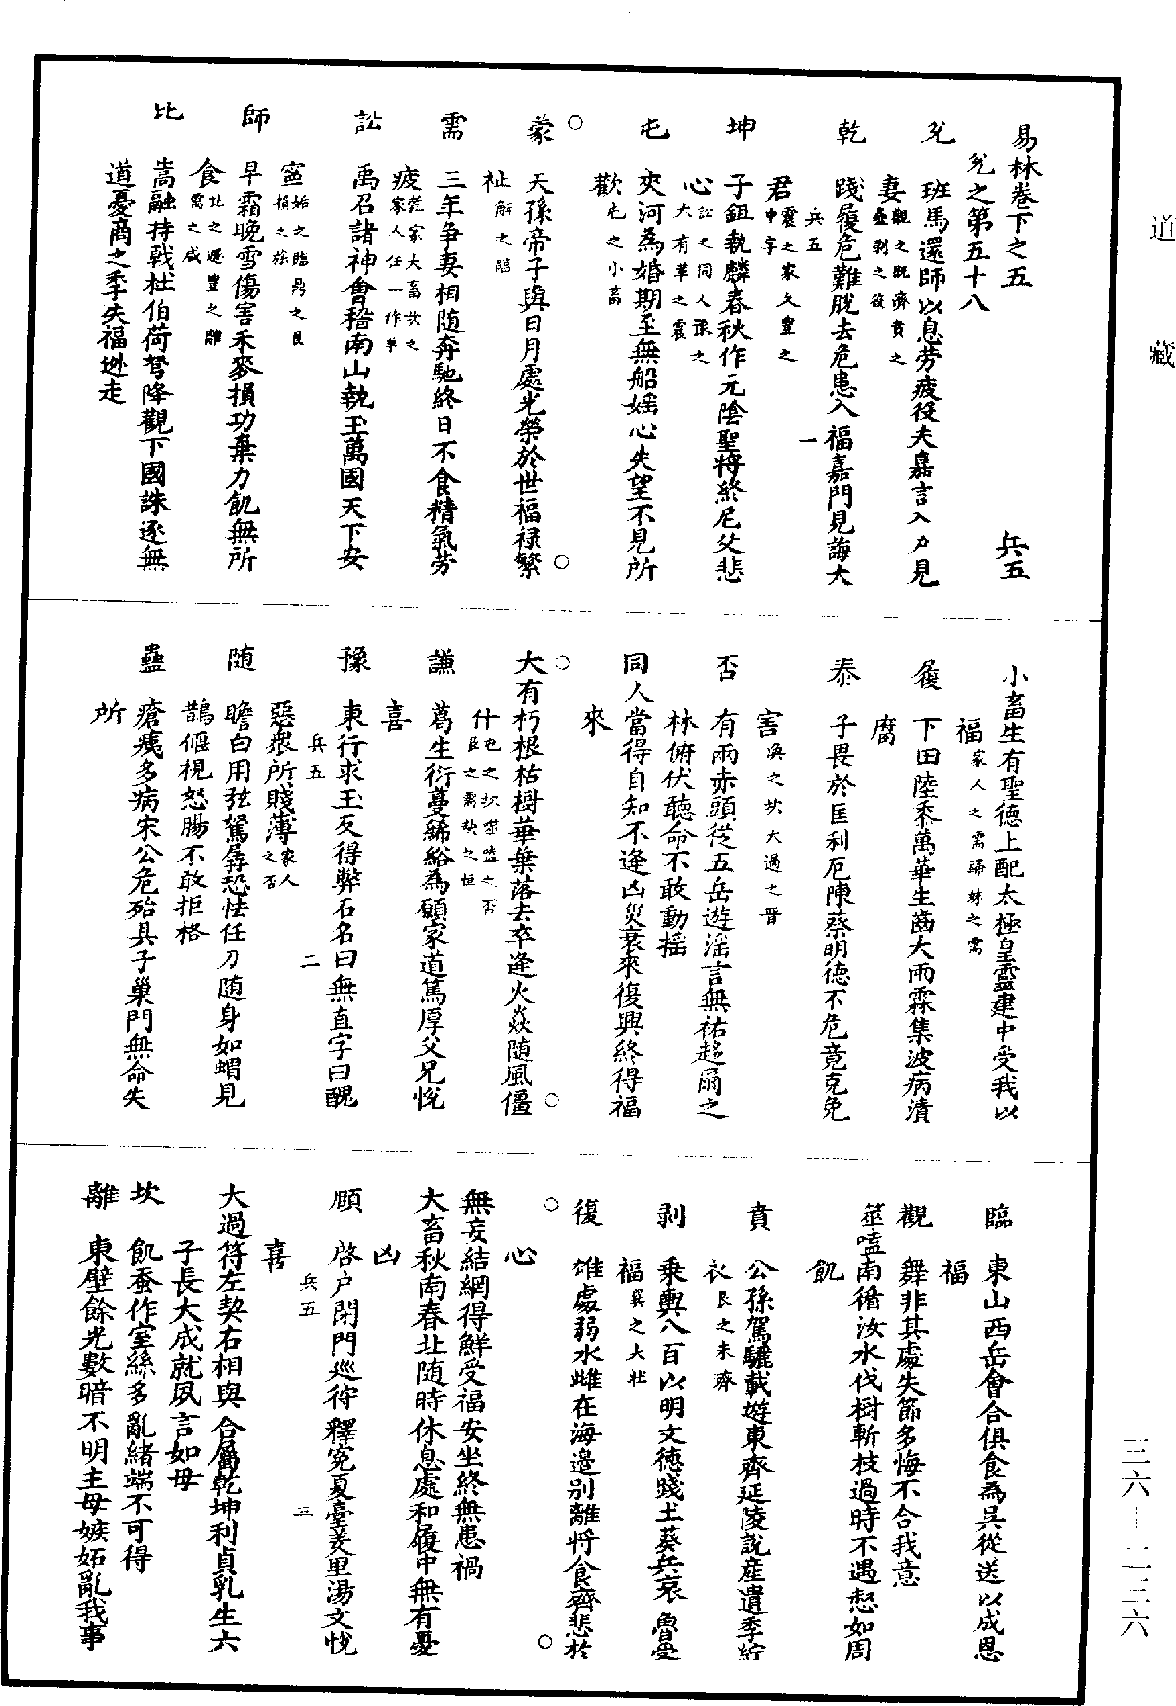 道藏
易林卷下之五
兵五
兌之第五十八
兌 班馬還師以息勞疲役夫嘉言入戶見
妻觀之既濟賁之蠱剝之復
乾 踐履危難脫去危患入福嘉門見誨大
兵五 一
君震之家人豐之中孚
坤 子鉏執麟春秋作元陰聖將終尼父悲
心訟之同人豫之大有革之震
屯 夾河為婚期至無船婬心失望不見所
歡屯之小畜
蒙 天孫帝子與日月處光榮於世福祿繁
祉解之臨
需 三年争妻相随奔馳終日不食精氣勞
疲
訟 禹召諸神會稽南山執玉萬國天下安
寍姤之臨鼎之艮損之
師 早霜晚雪傷害禾麥損功棄力飢無所
食比之遯豐之離需之咸
比 嵩融持戟杜伯荷弩降觀下國誅逐無
道夏商之季失福逃走
小畜生有聖德上配太極皇靈建中受我以
福家人之需歸妹之需
履 下田陸黍萬華生齒大雨霖集波病潰
腐
泰 子畏於匡利厄陳蔡明德不危竟克免
害渙之坎大過之晋
否 有兩赤頭從五岳遊滛言無祐趍爾之
林俯伏聽命不敢動摇
同人當得自知不逢凶災衰來復興終得福
來
大有朽根枯樹華葉落去卒逢火焱随風僵
什屯之坎噬嗑之否艮之需
謙 葛生衍蔓絺綌為願家道篤厚父兄恱
喜
豫 東行求玉反得弊石名曰無直字曰醜
兵五 二
惡衆所賤薄家人之否
随 瞻白用弦駑孱恐怯任刀随身如蝟見
鵲偃視怒腸不敢拒格
蠱 瘡痍多病宋公危殆具子巢門無命失
所
臨 東山西岳會合俱食為吴從送以成恩
福
觀 舞非其處失節多悔不合我意
筮嗑南循汝水伐樹斬枝過時不遇惄如周
飢
賁 公孫駕驪載遊東齊延陵說産遺季紵
衣艮之未濟
剥 乘輿八百以明文德賤土葵兵哀魯受
福巽之大壯
復 雄處弱水雌在海邉别離将食齊悲於
心
無妄結網得鮮受福安坐終無患禍
大畜秋南春北随時休息處和履中無有憂
凶
頤 啓户閉門巡狩釋寃夏臺羑里湯文恱
兵五 三
喜
大過符左契右相與合屬乾坤利貞乳生六
子長大成就夙言如母
坎 飢蚕作室絲多亂緒端不可得
離 東壁餘光數暗不明主母嫉妬亂我事
三六—二三六